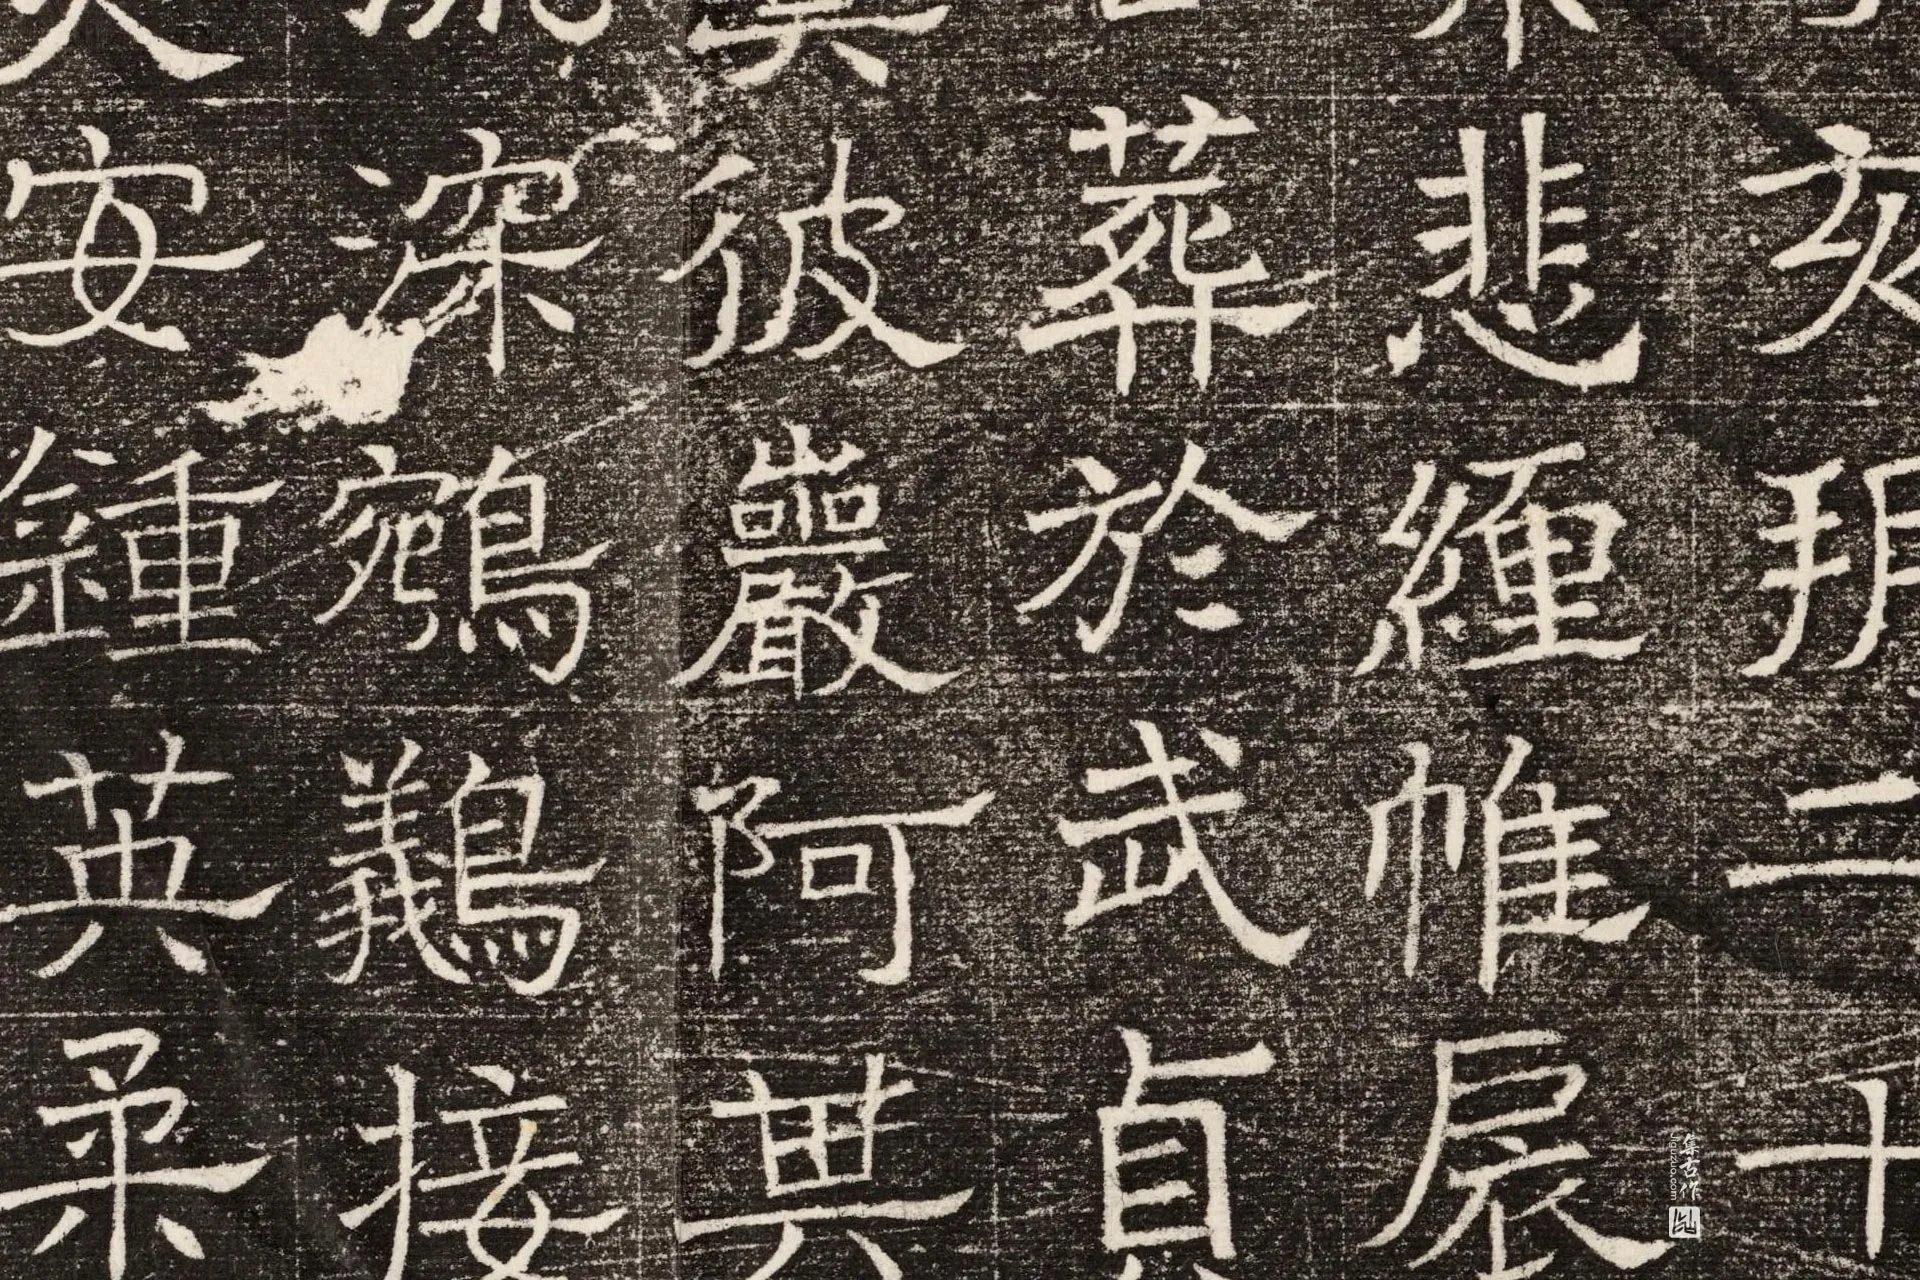 亥朔二十
悲纏帷扆
葬於武貞
彼巖阿典
深鵷鸃接
安鍾英柔
集古作
Jiguzuo.com